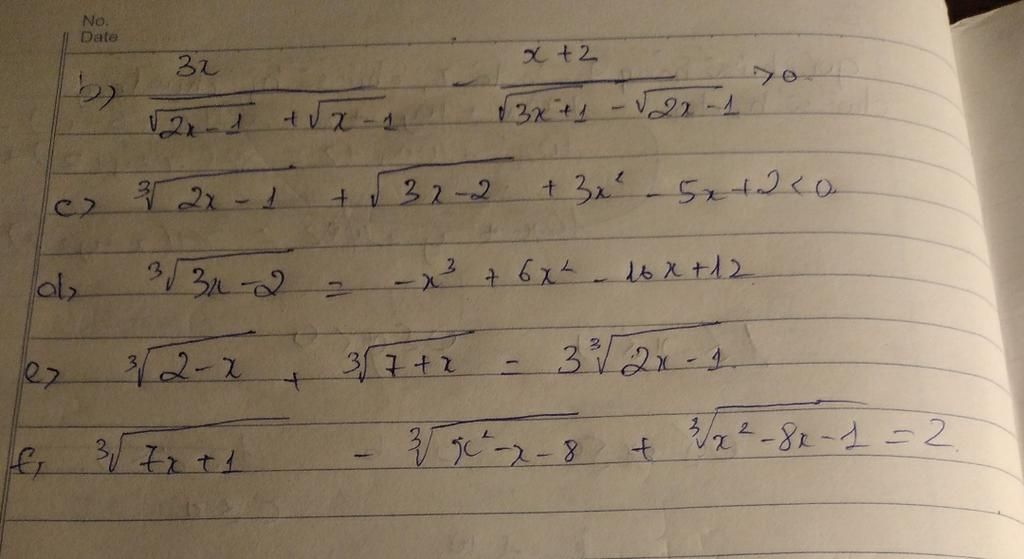 No.
Date
b) 3x/(√(2x-1) + √(x-1)) - (x+2)/(√(3x+1) - √(2x-1)) > 0
c) ∛(2x-1) + √(3x-2) + 3x² - 5x + 2 < 0
d) ∛(3x-2) = -x³ + 6x² - 16x + 12
e) ∛(2-x) + ∛(7+x) = 3∛(2x-1)
f) ∛(7x+1) - ∛(x²-x-8) + ∛(x²-8x-1) = 2